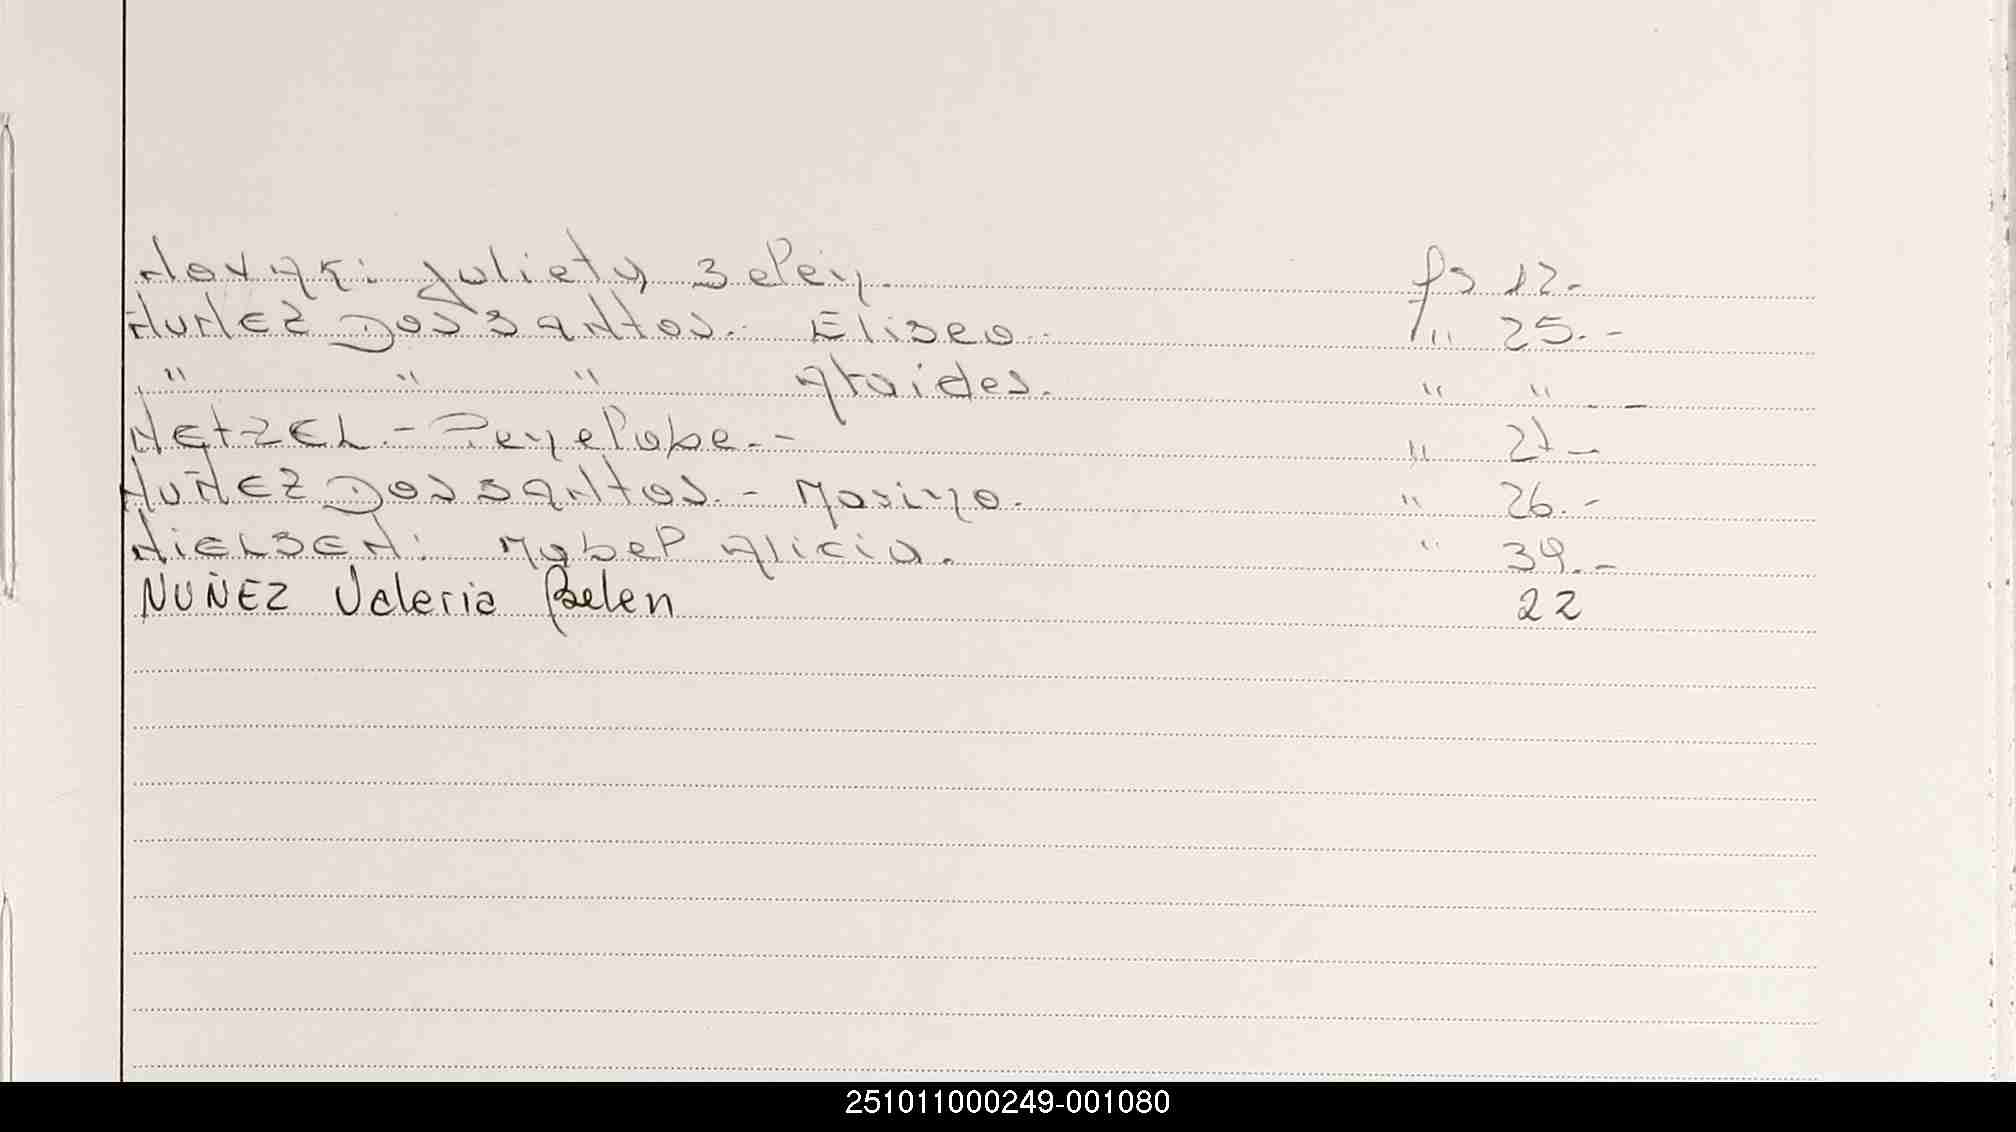 Novak: Julieta Belen. fs 12.-
Nuñez Dos Santos.. Eliseo.. " 25.-
" " " Ataides. " " -
NetzEL - Penelope.- " 21 -
NuñEZ Dos Santos.- Mosimo. " 26.-
NiELSEN: Mabel Alicia. " 39.-
NUÑEZ Valeria Belen 22
251011000249-001080